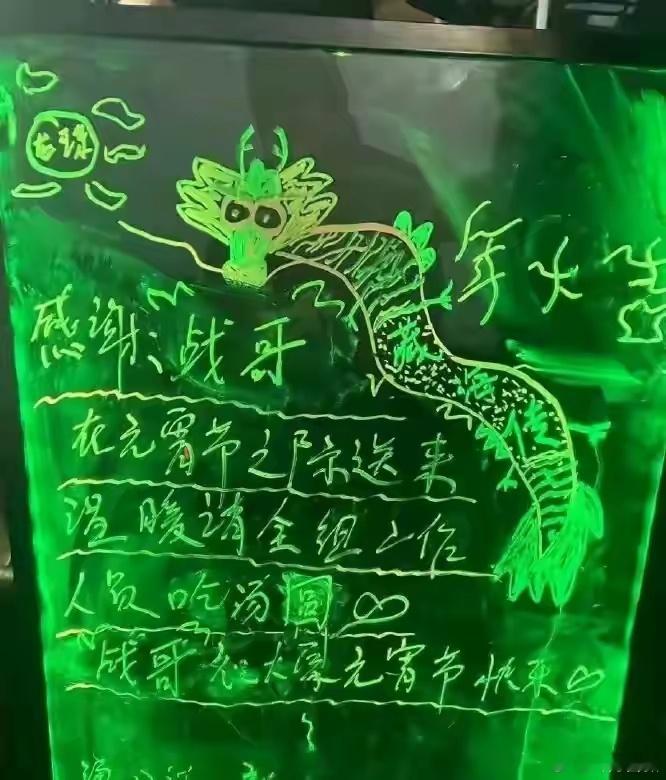 龙珠
年火
藏
感谢、战哥
在元宵节之际送来
温暖请全组工作
人员吃汤圆
战哥祝大家元宵节快乐